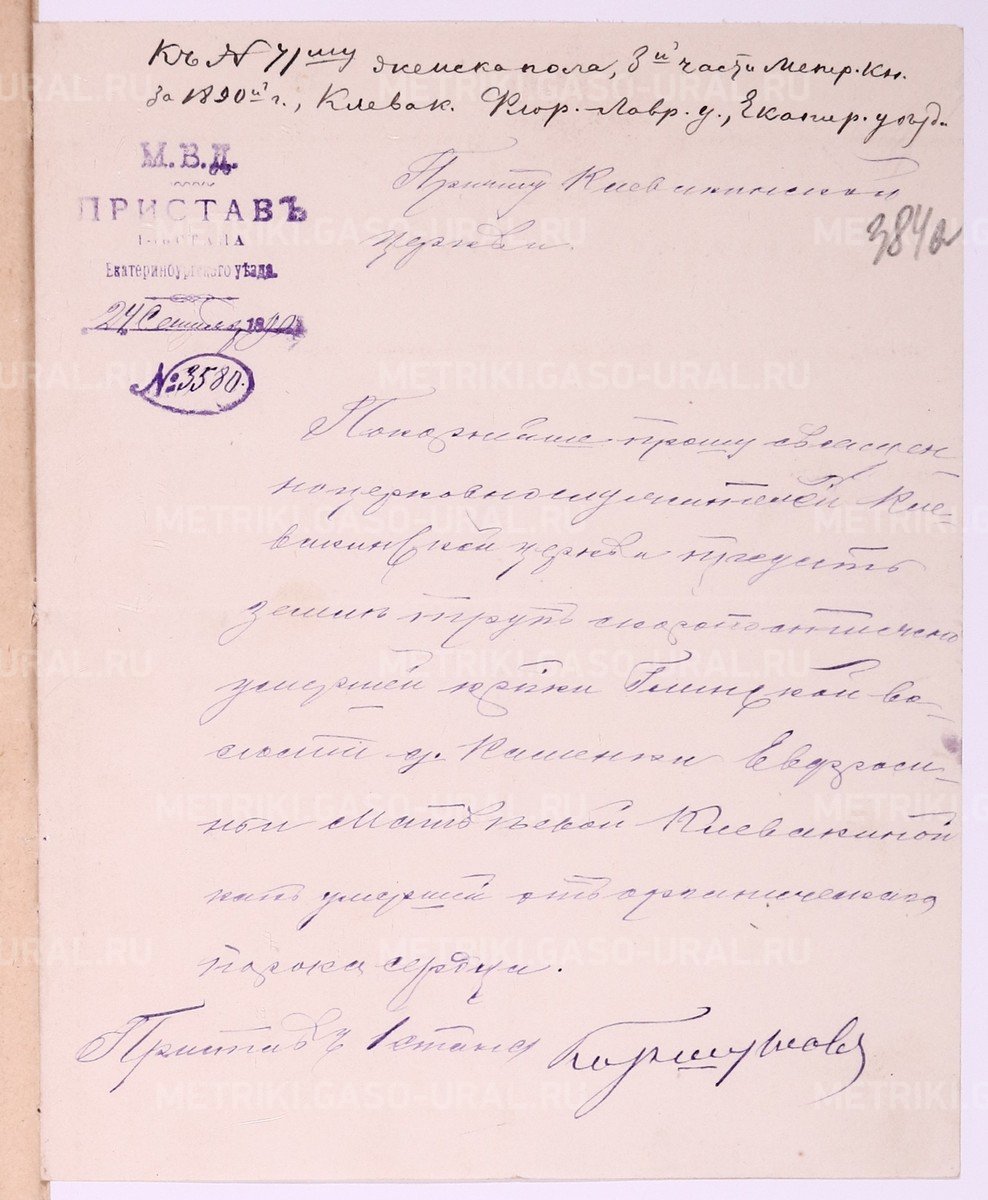 Къ № 71му женска пола, 3й части Метр. Кн.
за 1890й г., Клевак. Флор.-Лавр. ц., Екатер. уѣзд.
М. В. Д.
ПРИСТАВЪ
1-го СТАНА
Екатеринбургскаго уѣзда.
24 Сентября 1890
№ 3580.
Причту Клевакинской
церкви.
384а
Покорнѣйше прошу священ-
ноцерковнослужителей Кле-
вакинской церкви предать
землѣ трупъ скоропостижно
умершей кр-ки Глинской во-
лости д. Каменки Евдроси-
ньи Матвѣевой Клевакиной
какъ умершей отъ органическаго
порока сердца.
Приставъ 1 стана
METRIKI.GASO-URAL.RU